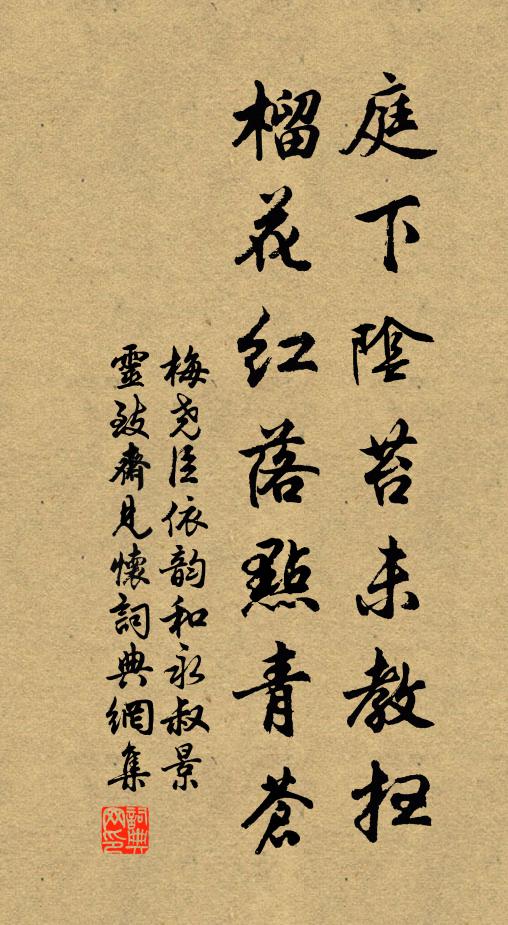 庭下陰苔未教扫
榴花红落點青蒼
梅尧臣依韵和永叔景
靈致齋見懷詞典網集
詞典网印